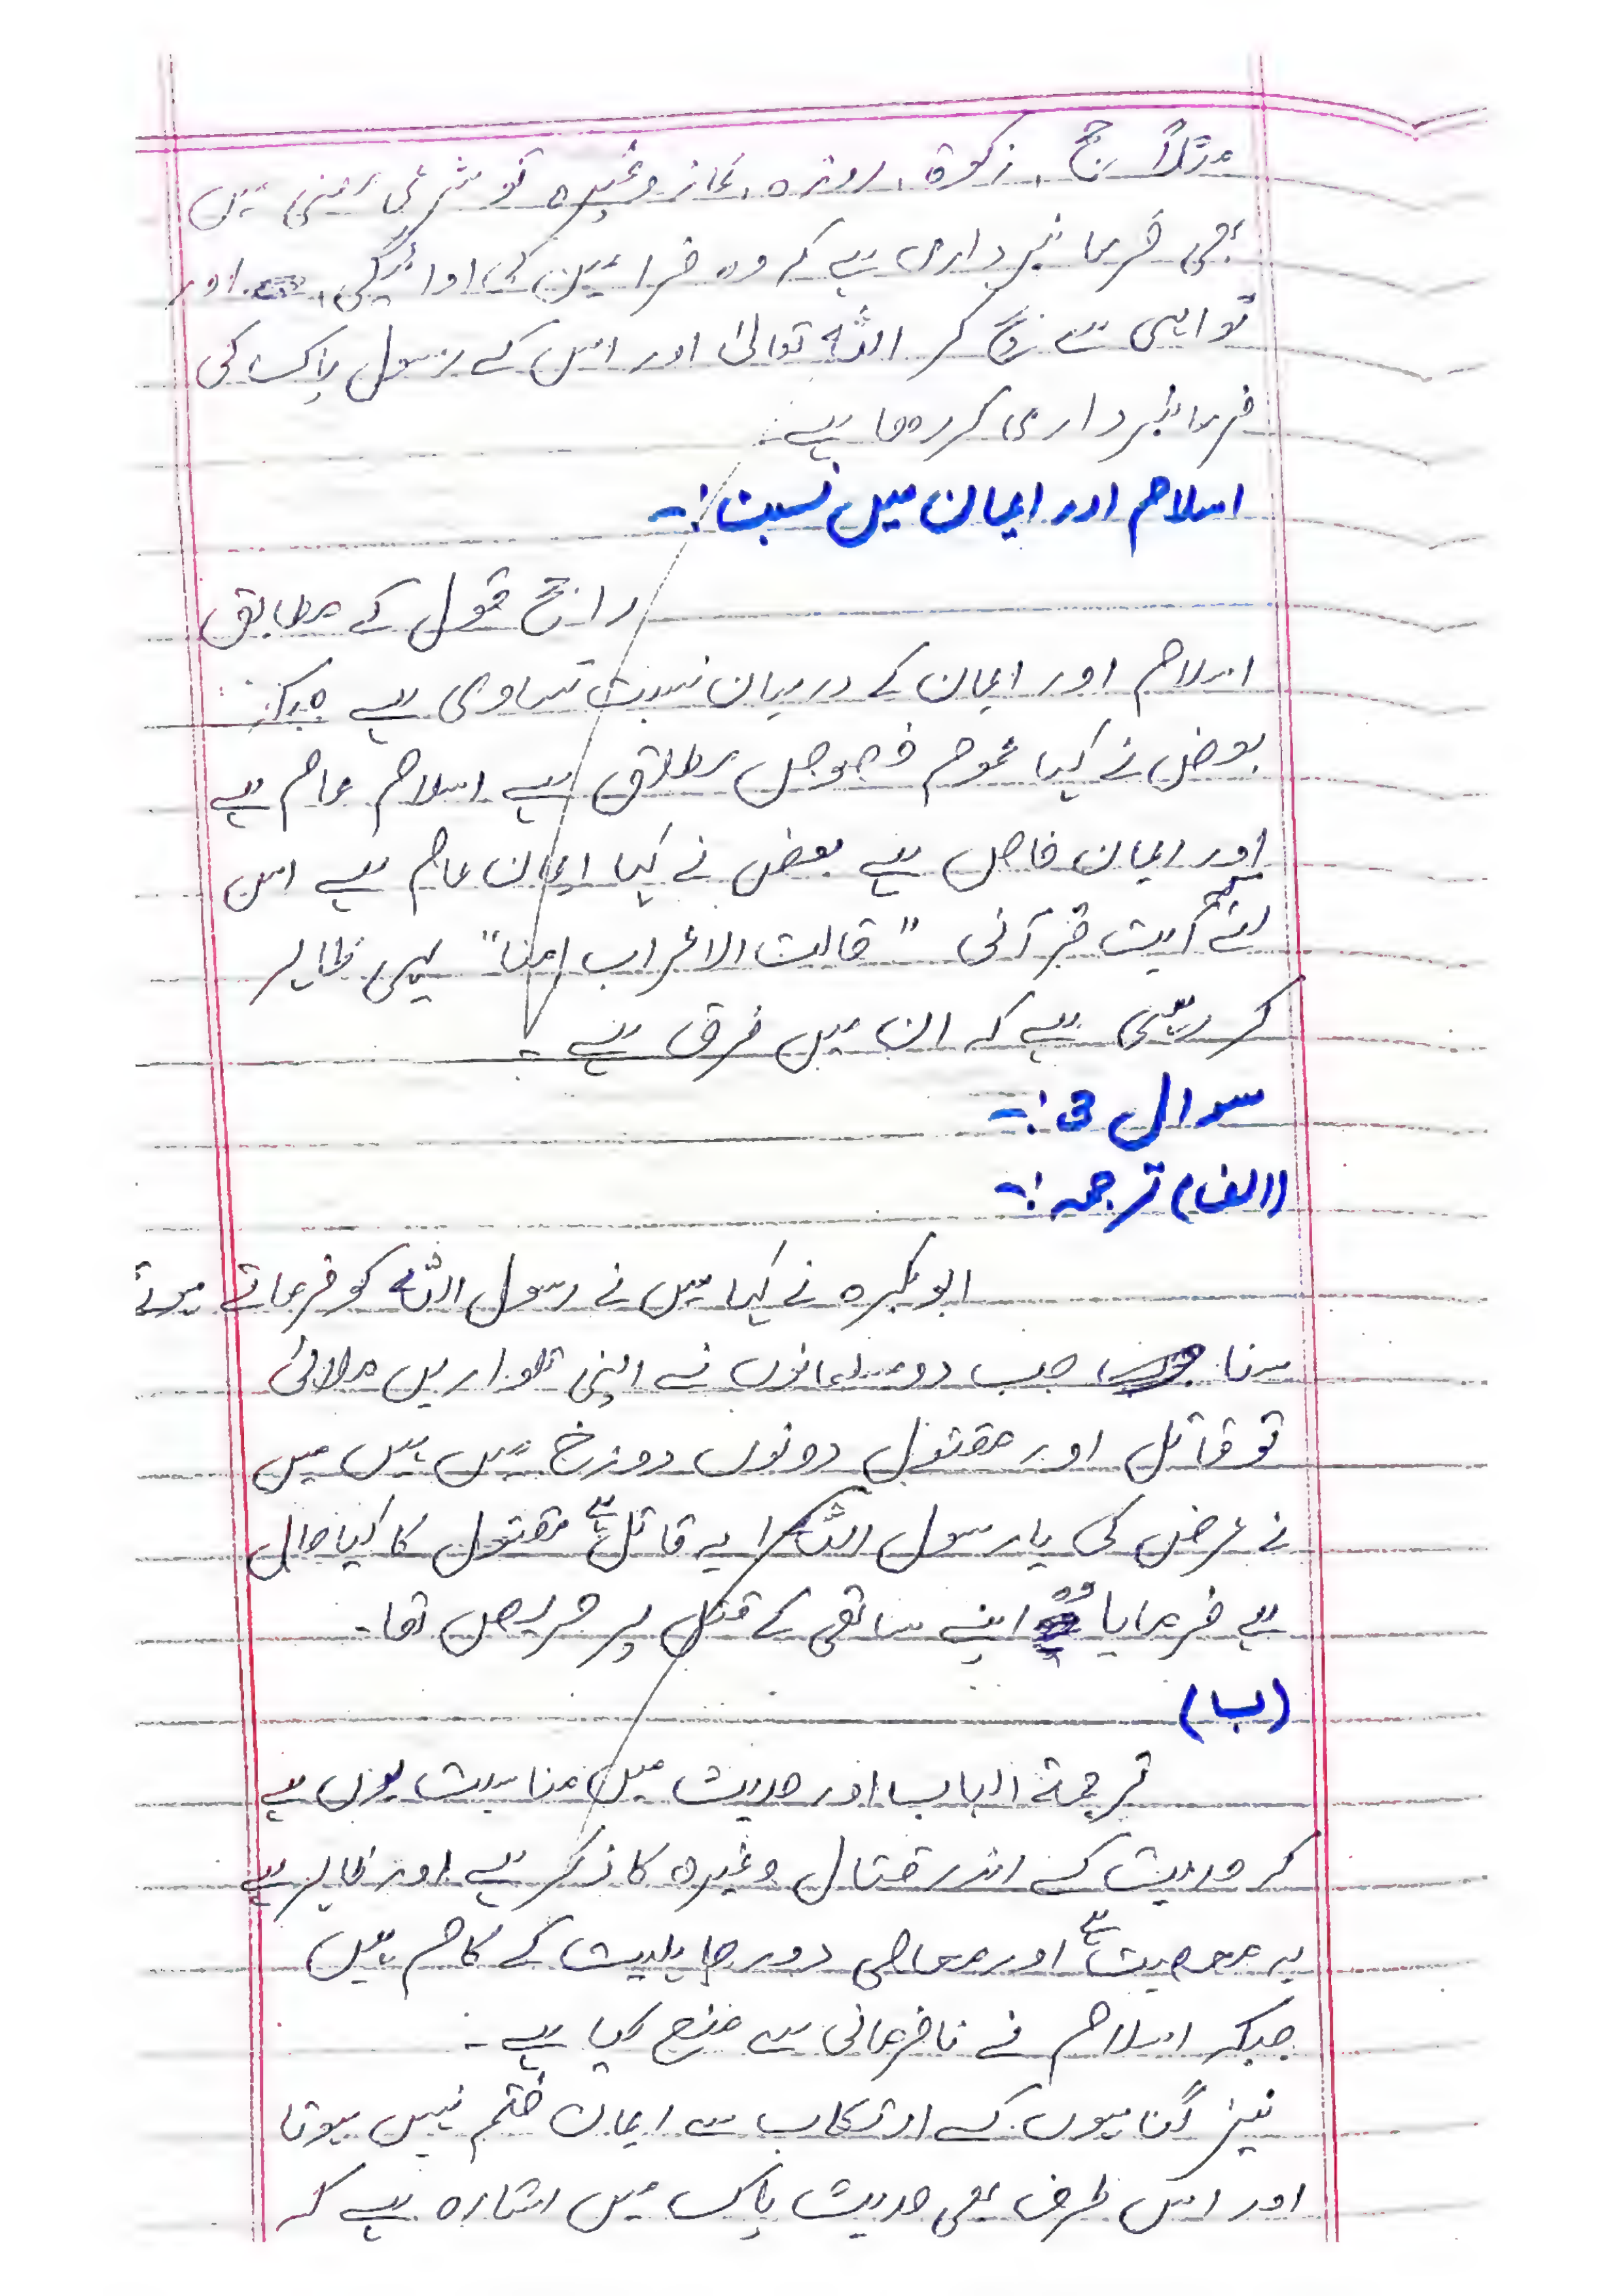 مثلاً حج، زکوۃ، روزہ، نماز وغیرہ تو شرعی معنی میں
بھی فرمانبرداری ہے کہ وہ فرامین کی ادائیگی، اور
نواہی سے بچ کر اللہ تعالیٰ اور اس کے رسول پاک کی
فرمانبرداری کر رہا ہے۔
اسلام اور ایمان میں نسبت :-
راجح قول کے مطابق
اسلام اور ایمان کے درمیان نسبت تساوی ہے جبکہ
بعض نے کہا عموم خصوص مطلق ہے اسلام عام ہے
اور ایمان خاص ہے بعض نے کہا ایمان عام ہے اس
لئے آیت قرآنی "قالت الاعراب امنا" یہی ظاہر
کر رہی ہے کہ ان میں فرق ہے۔
سوال 3 :-
(الف) ترجمہ :-
ابوبکرہ نے کہا میں نے رسول اللہ کو فرماتے ہوئے
سنا جب دو مسلمانوں نے اپنی تلواریں ملائی
تو قاتل اور مقتول دونوں دوزخ میں ہیں میں
نے عرض کی یا رسول اللہ! یہ قاتل ہے مقتول کا کیا حال
ہے فرمایا وہ اپنے ساتھی کے قتل پر حریص تھا۔
(ب)
ترجمۃ الباب اور حدیث میں مناسبت یوں ہے
کہ حدیث کے اندر قتال وغیرہ کا ذکر ہے اور ظاہر ہے
یہ معصیت ہے اور معاصی دور جاہلیت کے کام ہیں
جبکہ اسلام نے نافرمانی سے منع کیا ہے۔
نیز گناہوں کے ارتکاب سے ایمان ختم نہیں ہوتا
اور اس طرف بھی حدیث پاک میں اشارہ ہے کہ